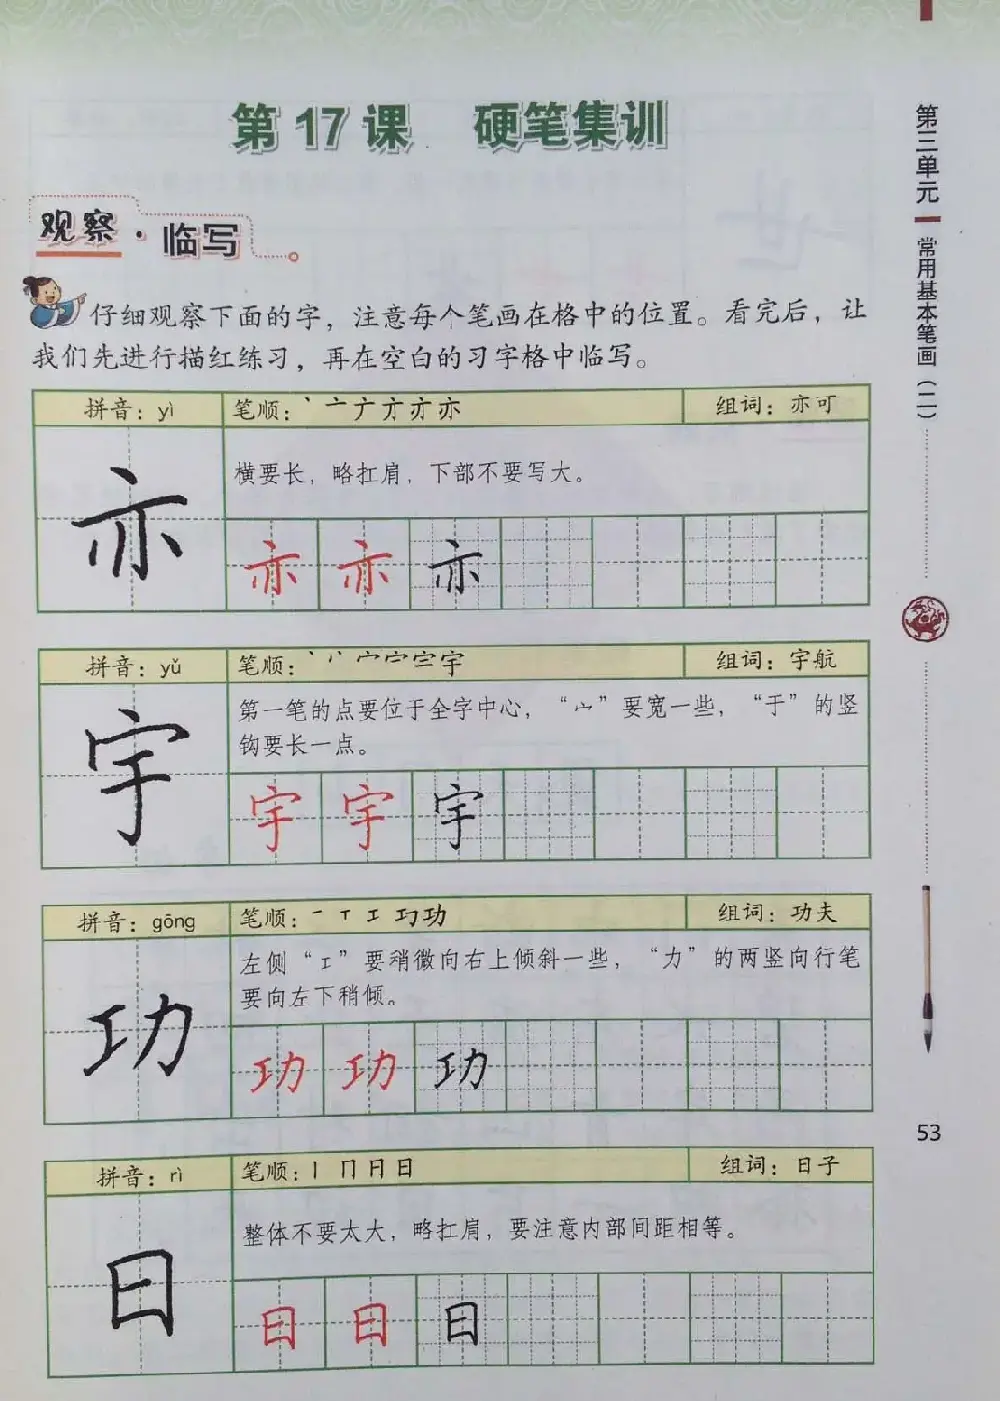 第17课 硬笔集训
观察·临写
仔细观察下面的字，注意每个笔画在格中的位置。看完后，让
我们先进行描红练习，再在空白的习字格中临写。
拼音：yì 笔顺： 组词：亦可
横要长，略扛肩，下部不要写大。
亦
亦 亦 亦
拼音：yǔ 笔顺： 组词：宇航
第一笔的点要位于全字中心，“宀”要宽一些，“于”的竖
钩要长一点。
宇
宇 宇 宇
拼音：gōng 笔顺： 组词：功夫
左侧“工”要稍微向右上倾斜一些，“力”的两竖向行笔
要向左下稍倾。
功
功 功 功
拼音：rì 笔顺：丨 冂 日 日 组词：日子
整体不要太大，略扛肩，要注意内部间距相等。
日
日 日 日
第三单元
常用基本笔画（二）
53